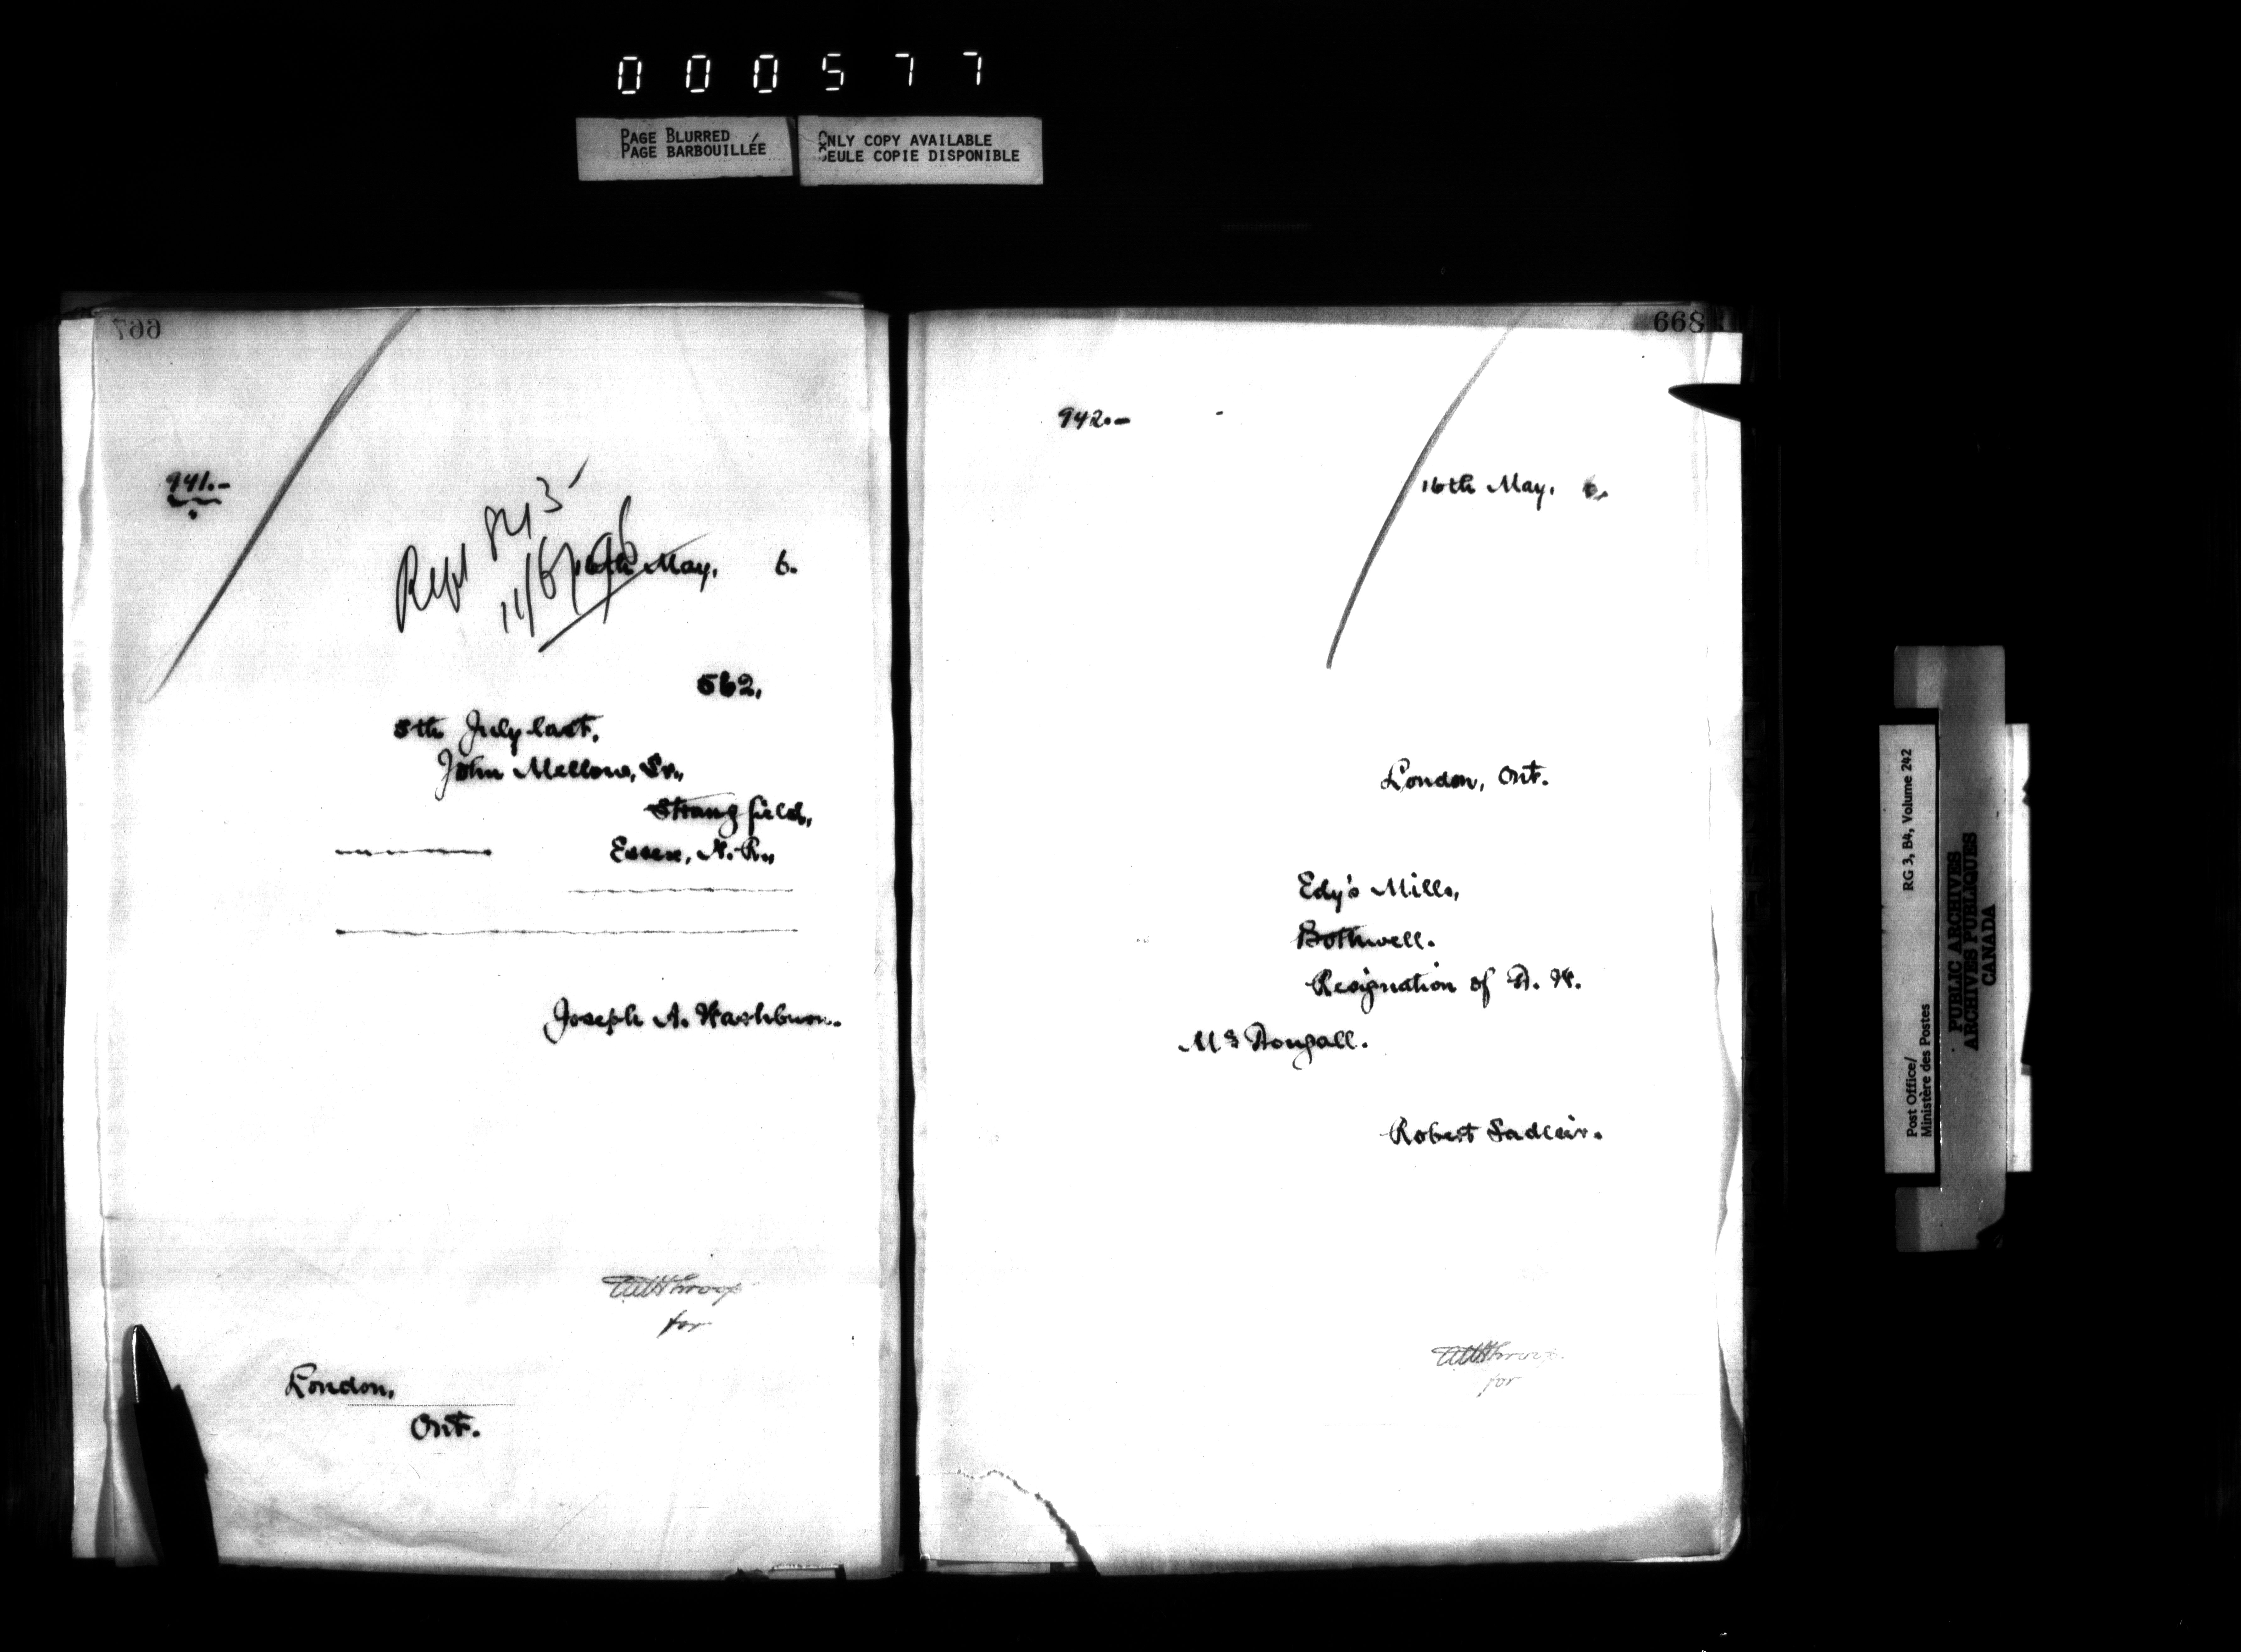 000577
PAGE BLURRED
PAGE BARBOUILLÉE
ONLY COPY AVAILABLE
SEULE COPIE DISPONIBLE
667
941.-
Rept 8413
11/6/96
16th May, 6.
562.
5th July last.
John Mellow, Sr.,
Strangfield,
Essex, N.R.,
Joseph A. Washburn.
for
London,
Ont.
668
942.-
16th May, 6.
London, Ont.
Edy's Mills,
Bothwell.
Resignation of D. W.
Mc Dougall.
Robert Sadleir.
for
RG 3, B4, Volume 242
Post Office/
Ministère des Postes
PUBLIC ARCHIVES
ARCHIVES PUBLIQUES
CANADA